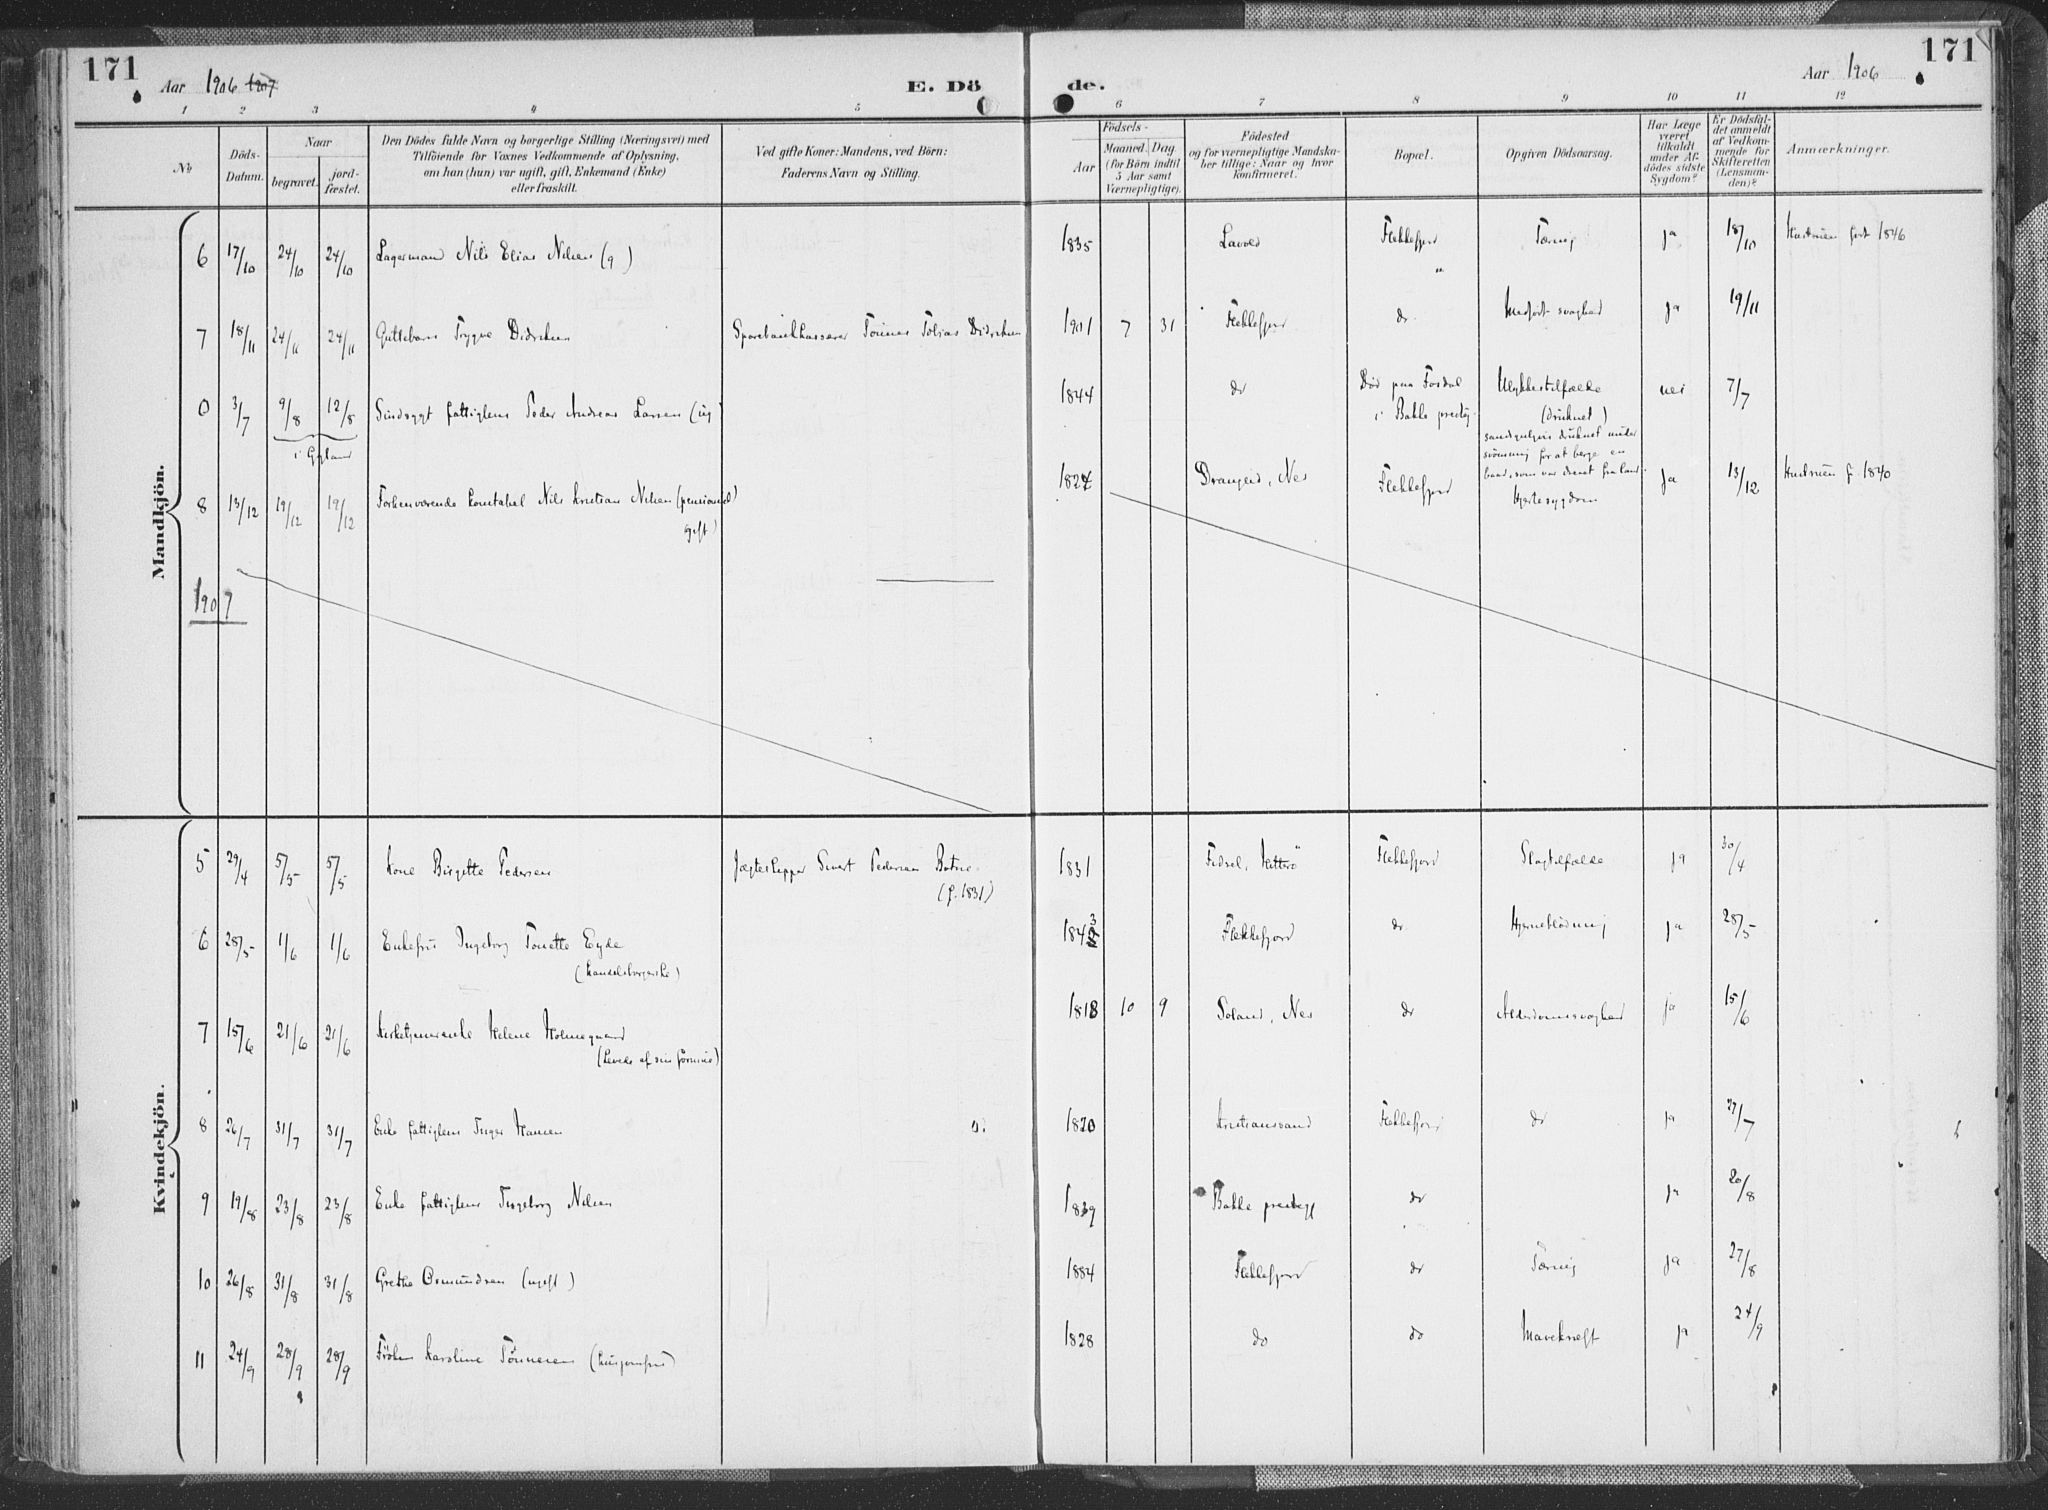 171
Aar 1906 1907
E. Dö
de.
Aar 1906
171
1 2 3 4 5 6 7 8 9 10 11 12
No
Döds-Datum.
Naar
begravet.
jord-fæstet.
Den Dödes fulde Navn og borgerlige Stilling (Næringsvei) med
Tilföiende for Voxnes Vedkommende af Oplysning,
om han (hun) var ugift, gift, Enkemand (Enke)
eller fraskilt.
Ved gifte Koner: Mandens, ved Börn:
Faderens Navn og Stilling.
Födsels-
Aar
Maaned. Dag
(for Börn indtil
5 Aar samt
Værnepligtige).
Födested
og for værnepligtige Mandska-
ber tillige: Naar og hvor
konfirmeret.
Bopæl.
Opgiven Dödsaarsag.
Har Læge
været
tilkaldt
under Af-
dödes sidste
Sygdom?
Er Dödsfal-
det anmeldt
af Vedkom-
mende for
Skifteretten
(Lensman-
den)?
Anmærkninger.
Mandkjön.
6 17/10 24/10 24/10 Lagermand Nils Elias Nilsen (g) 1835 Flekkefjord Tæring ja 18/10 Hustruen født 1846
7 18/11 24/11 24/11 Guttebarn Trygve Didriksen Sparebankkasserer Tönnes Tobias Didriksen 1901 7 31 Flekkefjord do Medfødt svaghed ja 19/11
0 3/7 9/8 12/8 Sindssygt fattiglem Peder Andreas Larsen (ug) 1844 do Död paa Fosdal Ulykkestilfælde nei 7/7
i Gyland
i Bakke prestegj.
(druknet)
sandsynligvis druknet under
svömning for at berge en
baad, som var drevet fra land
8 13/12 19/12 19/12 Forhenværende konstabel Nils Kristian Nilsen (pensioneret 1827 Drangeid, Nes Flekkefjord Hjertesygdom ja 13/12 Hustruen f. 1840
gift)
1907
Kvindekjön.
5 29/4 5/5 5/5 Kone Birgitte Pedersen Jægteskipper Sivert Pedersen Botne 1831 Fidsel, Hitterö Flekkefjord Slagtilfælde ja 30/4
(f. 1831)
6 28/5 1/6 1/6 Enkefru Ingeborg Tonette Eyde 1843 Flekkefjord do Hjerneblödning ja 28/5
(handelsborgerske)
7 15/6 21/6 21/6 Kirketjenerenke Helene Holmegaard 1818 10 9 Soland, Nes do Alderdomssvaghed ja 15/6
(Levede af sin formue)
8 26/7 31/7 31/7 Enke fattiglem Inger Hansen 1820 Kristianssand Flekkefjord do ja 27/7
9 19/8 23/8 23/8 Enke fattiglem Ingeborg Nilsen 1839 Bakke prestegj do ja 20/8
10 26/8 31/8 31/8 Grethe Osmundsen (ugift) 1884 Flekkefjord do Tæring ja 27/8
11 24/9 28/9 28/9 Fröken Karoline Tönnesen (husjomfru) 1828 do do Mavekræft ja 24/9